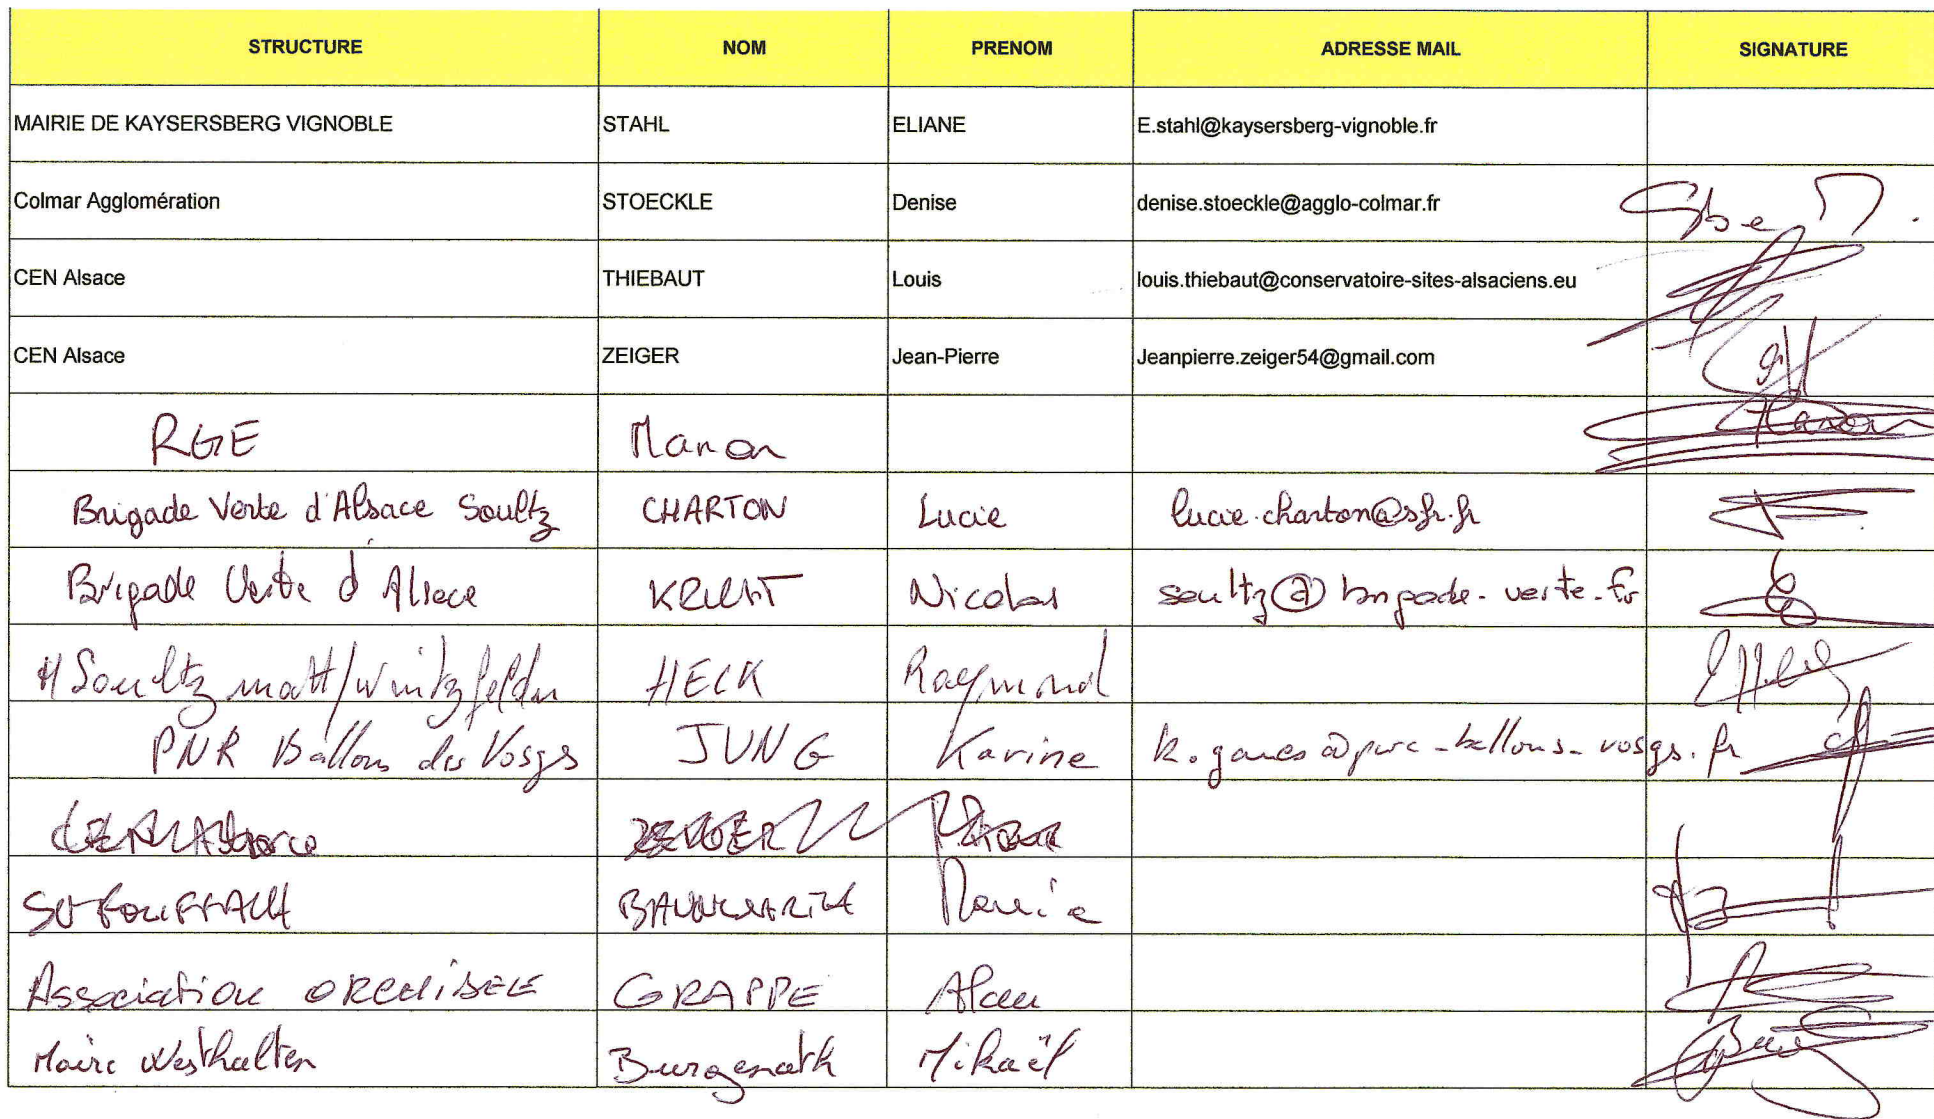 STRUCTURE NOM PRENOM ADRESSE MAIL SIGNATURE
MAIRIE DE KAYSERSBERG VIGNOBLE STAHL ELIANE E.stahl@kaysersberg-vignoble.fr
Colmar Agglomération STOECKLE Denise denise.stoeckle@agglo-colmar.fr
CEN Alsace THIEBAUT Louis louis.thiebaut@conservatoire-sites-alsaciens.eu
CEN Alsace ZEIGER Jean-Pierre Jeanpierre.zeiger54@gmail.com
RGE Manon Manon
Brigade Verte d'Alsace Soultz CHARTON Lucie lucie.charton@sfr.fr
Brigade Verte d'Alsace Nicolas soultz@brigade-verte.fr
Soultzmatt/Wintzfelden HECK Raymond
PNR Ballons des Vosges JUNG Karine
CEN Alsace ZEIGER
Association GRAPPE Alain
Maire Westhalten Burgenath Mikaël